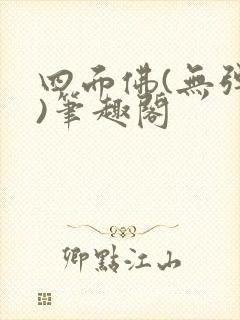 四面佛(無弹
)筆趣閣
卿點江山